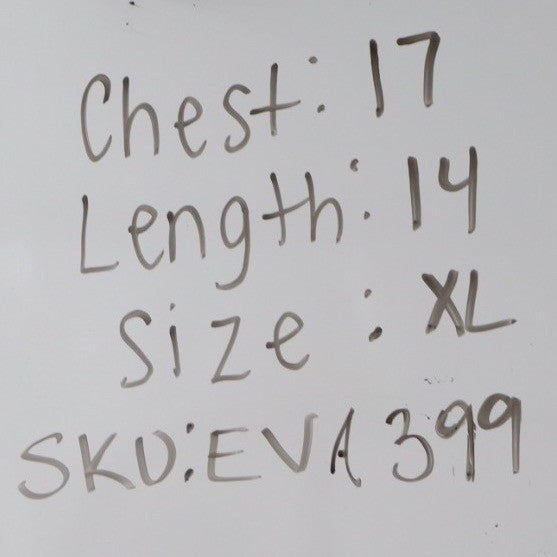 Chest: 17
Length: 14
Size: XL
SKU: EVA 399